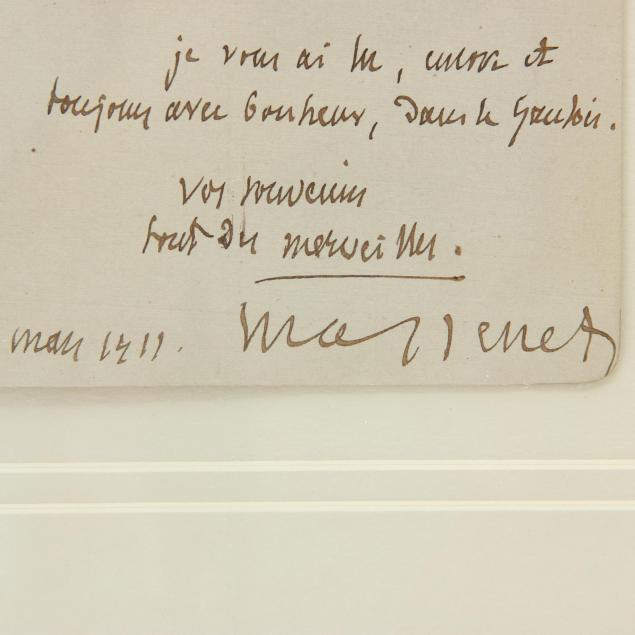 je vous ai lu, encore et
toujours avec bonheur, dans le Gaulois.
vos souvenirs
sont des merveilles.
mars 1911.
Massenet